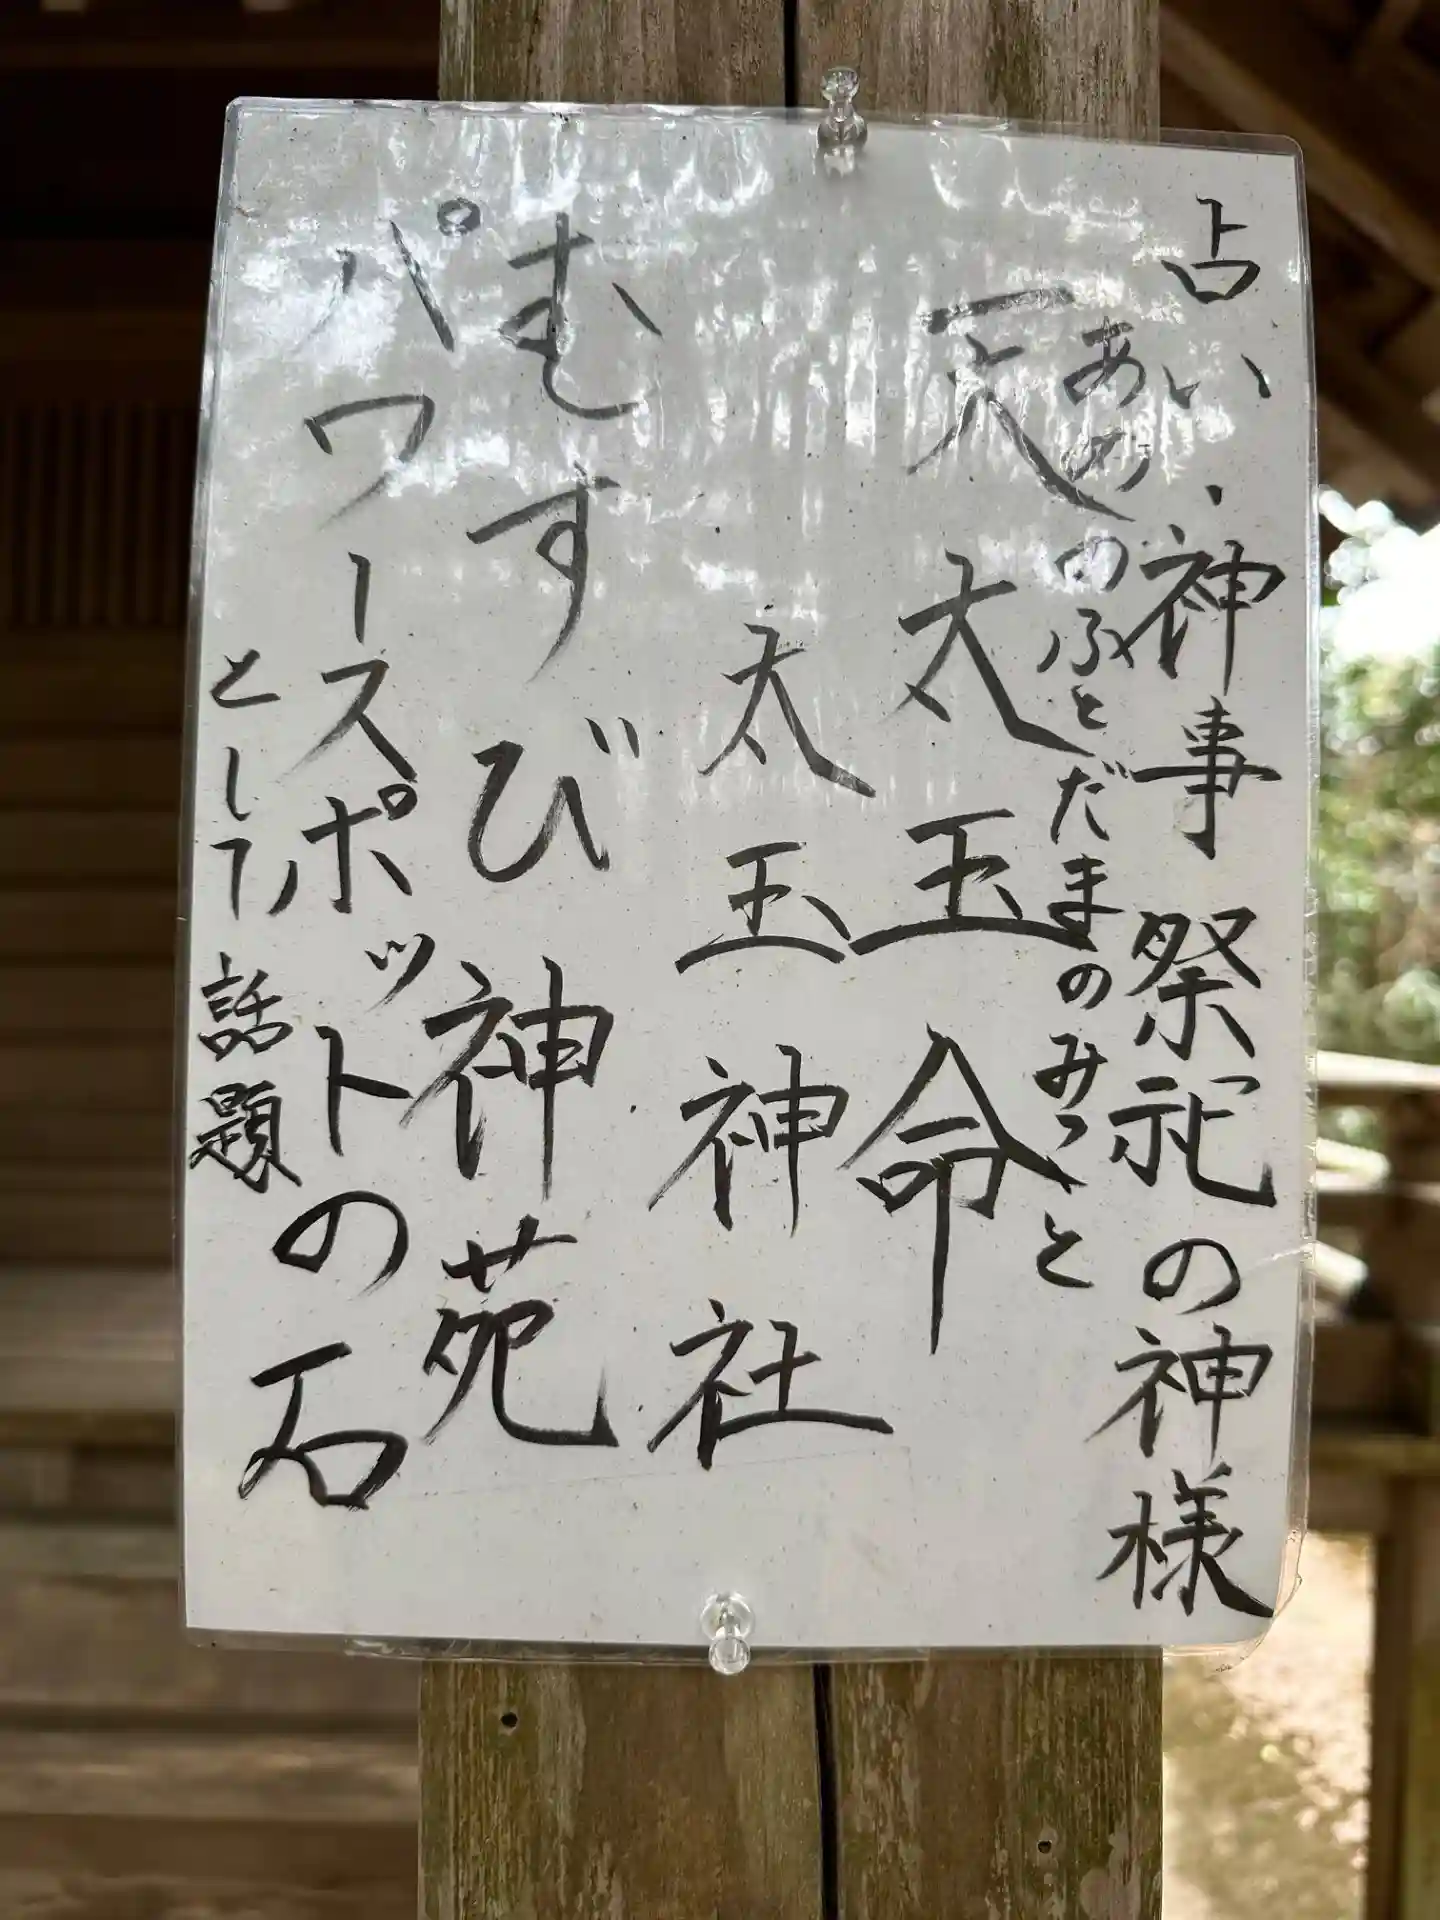 占い・神事祭祀の神様
あめのふとだまのみこと
天太玉命
太玉神社
むすび神苑
パワースポットの石
として話題